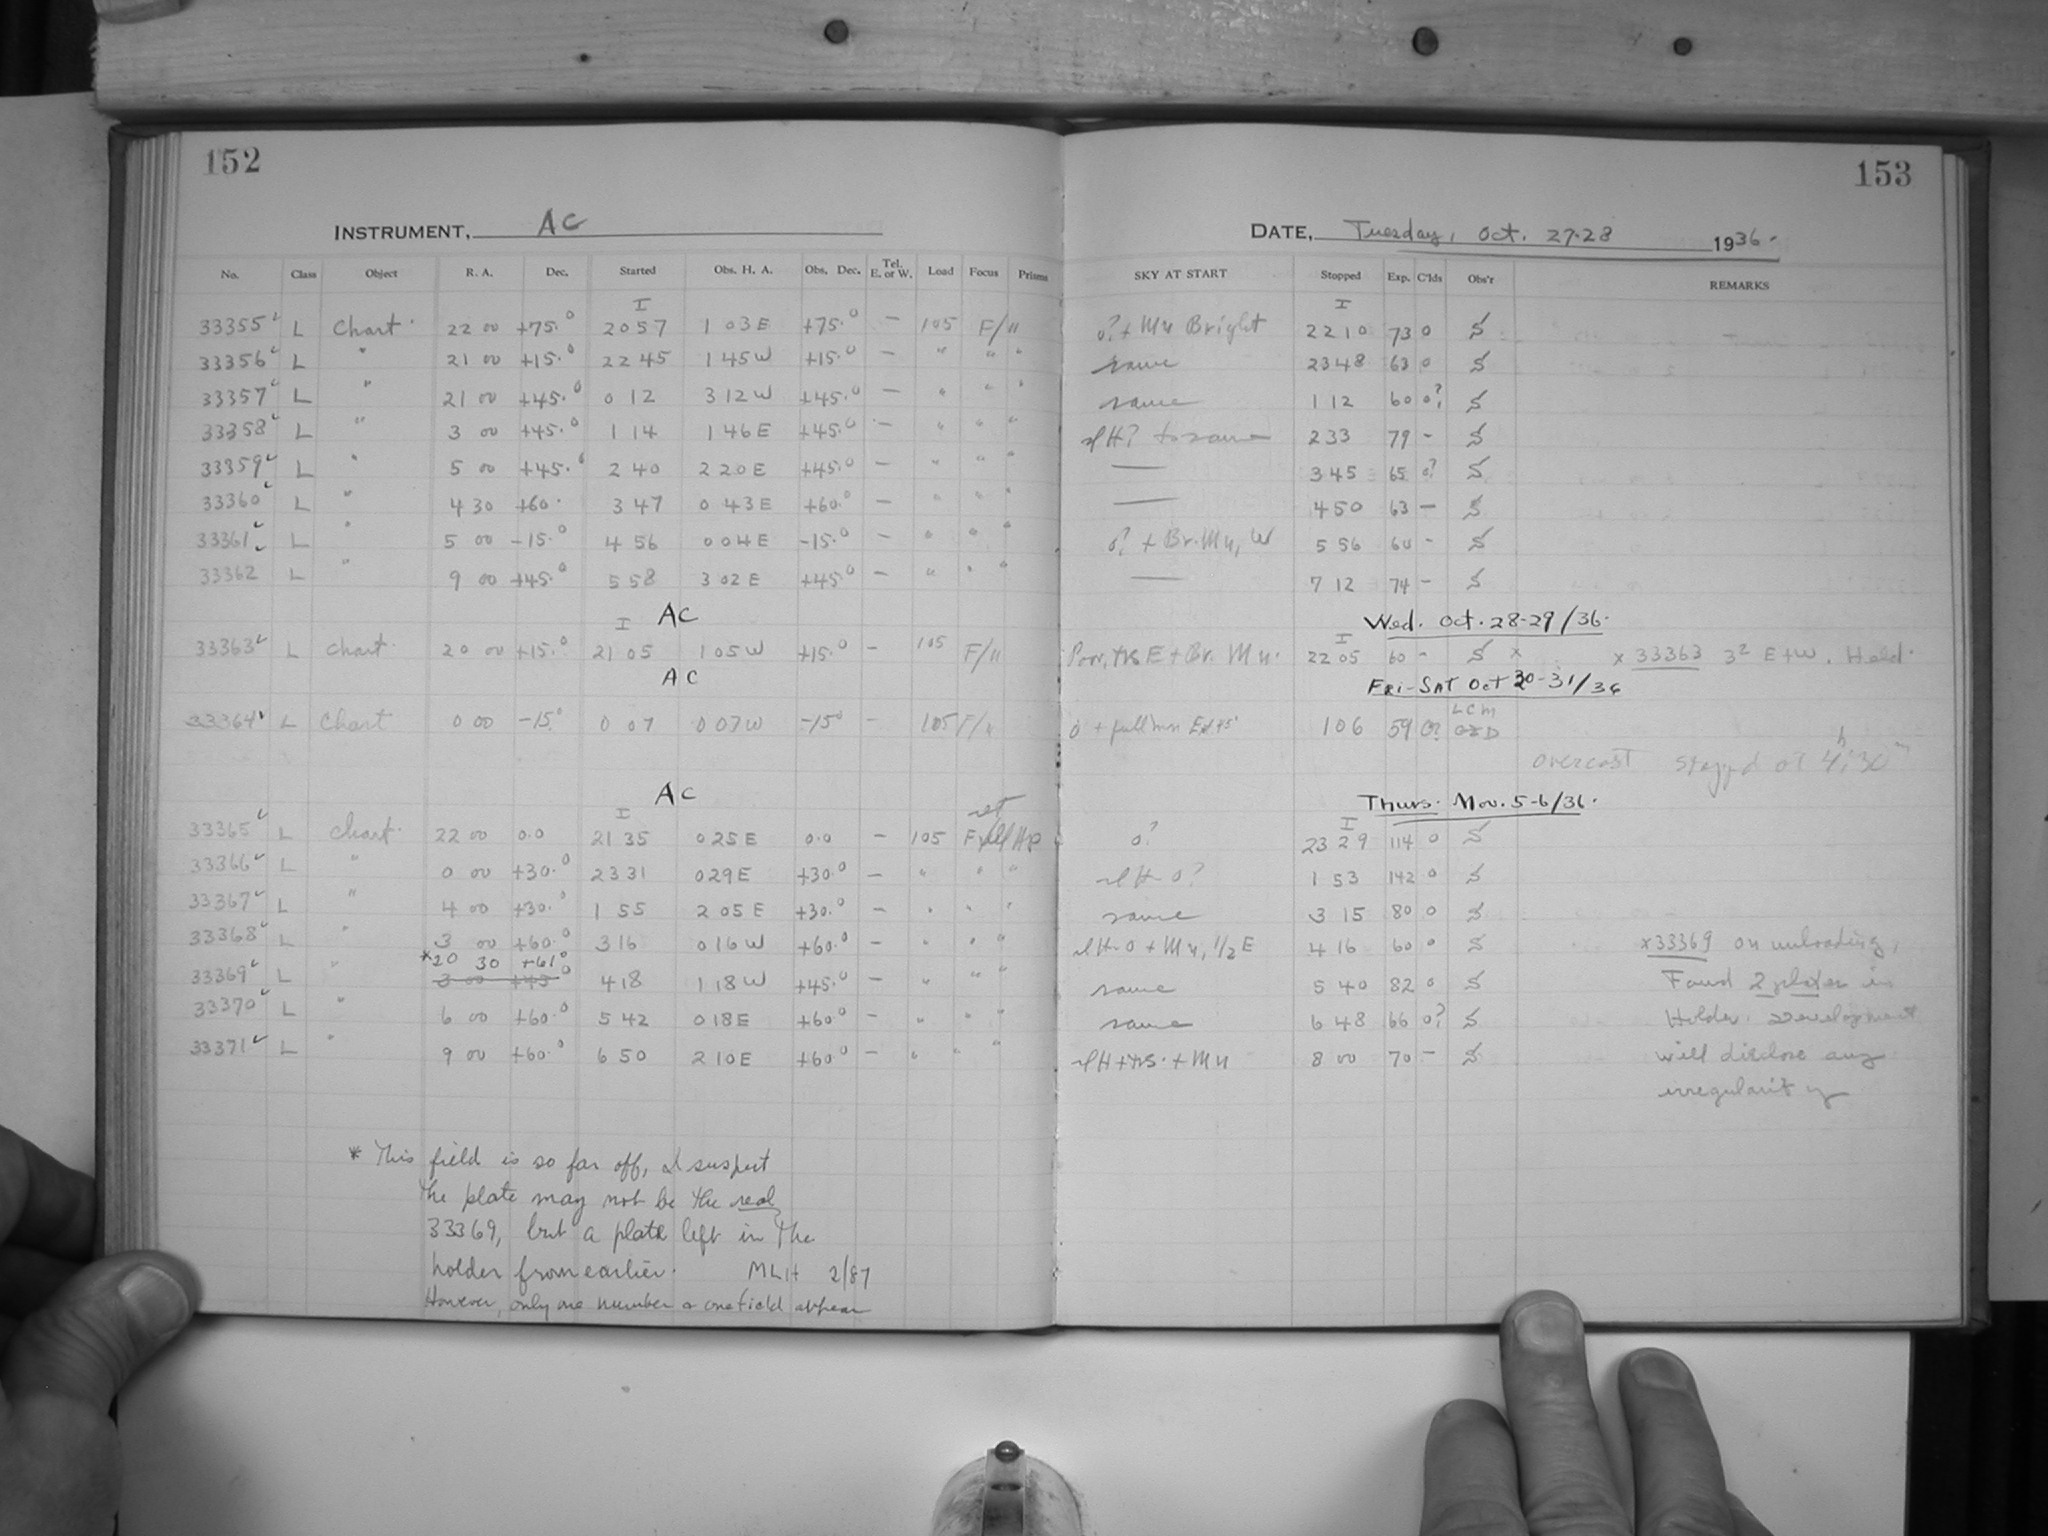 152
153
INSTRUMENT, AC
DATE, Tuesday, Oct. 27-28 1936.
No. Class Object R. A. Dec. Started Obs. H. A. Obs. Dec. Tel. E. or W. Load Focus Prisms SKY AT START Stopped Exp. C'lds Obs'r REMARKS
I I
33355 L Chart 22 00 +75.0 20 57 1 03 E +75.0 — 105 F/11 0? + Mn Bright 22 10 73 0 S
33356 L " 21 00 +15.0 22 45 1 45 W +15.0 — " " " same 23 48 63 0 S
33357 L " 21 00 +45.0 0 12 3 12 W +45.0 — " " " same 1 12 60 0? S
33358 L " 3 00 +45.0 1 14 1 46 E +45.0 — " " " slH? to same 2 33 79 - S
33359 L " 5 00 +45.0 2 40 2 20 E +45.0 — " " " — 3 45 65 0? S
33360 L " 4 30 +60. 3 47 0 43 E +60.0 — " " " — 4 50 63 — S
33361 L " 5 00 -15.0 4 56 0 04 E -15.0 — " " " 0? + Br. Mn, W 5 56 60 - S
33362 L " 9 00 +45.0 5 58 3 02 E +45.0 — " " " — 7 12 74 - S
AC Wed. Oct. 28-29/36.
I I
33363 L Chart 20 00 +15.0 21 05 1 05 W +15.0 - 105 F/11 Poor, E + Br. Mn. 22 05 60 - S x x 33363 E + W. Held.
AC Fri-Sat Oct 30-31/36
LCM
33364 L Chart 0 00 -15.0 0 07 0 07 W -15.0 - 105 F/11 0 + full mn 1 06 59 0?
overcast stopped at 4h 30m
AC Thurs. Nov. 5-6/36.
I I
33365 L Chart 22 00 0.0 21 35 0 25 E 0.0 — 105 0? 23 29 114 0 S
33366 L " 0 00 +30.0 23 31 0 29 E +30.0 — " " " slH-0? 1 53 142 0 S
33367 L " 4 00 +30.0 1 55 2 05 E +30.0 — " " " same 3 15 80 0 S
33368 L " 3 00 +60.0 3 16 0 16 W +60.0 — " " " slH-0 + Mn, 1/2 E 4 16 60 0 S x 33369 on unloading,
*20 30 +61.0
33369 L " 3 00 +45.0 4 18 1 18 W +45.0 — " " " same 5 40 82 0 S Found 2 plates in
33370 L " 6 00 +60.0 5 42 0 18 E +60.0 — " " " same 6 48 66 0? S Holder. Development
33371 L " 9 00 +60.0 6 50 2 10 E +60.0 — " " " slH + + Mn 8 00 70 - S will disclose any
irregularity
* This field is so far off, I suspect
the plate may not be the real
33369, but a plate left in the
holder from earlier. MLH 2/87
However, only one number & one field appear